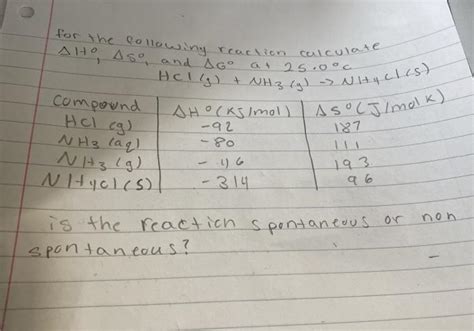 for the following reaction calculate
ΔH°, ΔS°, and ΔG° at 25.0°C
HCl (g) + NH3 (g) → NH4Cl(s)
Compound ΔH°(KJ/mol) ΔS°(J/mol K)
HCl (g) -92 187
NH3 (aq) -80 111
NH3 (g) -46 193
NH4Cl(s) -314 96
is the reaction spontaneous or non
spontaneous?